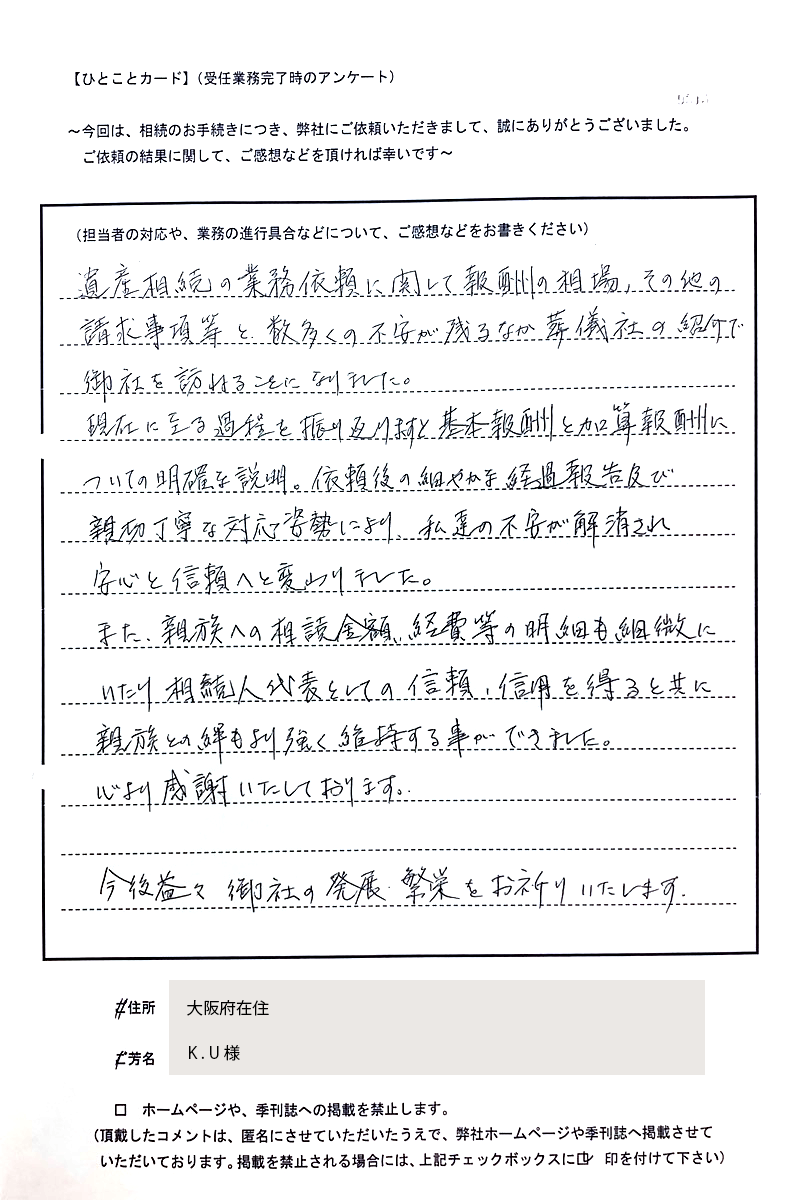 【ひとことカード】（受任業務完了時のアンケート）
～今回は、相続のお手続きにつき、弊社にご依頼いただきまして、誠にありがとうございました。
ご依頼の結果に関して、ご感想などを頂ければ幸いです～
（担当者の対応や、業務の進行具合などについて、ご感想などをお書きください）
遺産相続の業務依頼に関して報酬の相場，その他の
請求事項等と、数多くの不安が残るなか葬儀社の紹介で
御社を訪ねることになりました。
現在に至る過程を振り返りますと基本報酬と加算報酬に
ついての明確な説明。依頼後の細やかな経過報告及び
親切丁寧な対応姿勢により、私達の不安が解消され
安心と信頼へと変わりました。
また、親族への相談金額、経費等の明細も細微に
いたり相続人代表としての信頼，信用を得ると共に
親族との絆もより強く維持する事ができました。
心より感謝いたしております。
今後益々御社の発展、繁栄をお祈りいたします。
住所 大阪府在住
芳名 K.U様
□ ホームページや、季刊誌への掲載を禁止します。
（頂戴したコメントは、匿名にさせていただいたうえで、弊社ホームページや季刊誌へ掲載させて
いただいております。掲載を禁止される場合には、上記チェックボックスに☑ 印を付けて下さい）